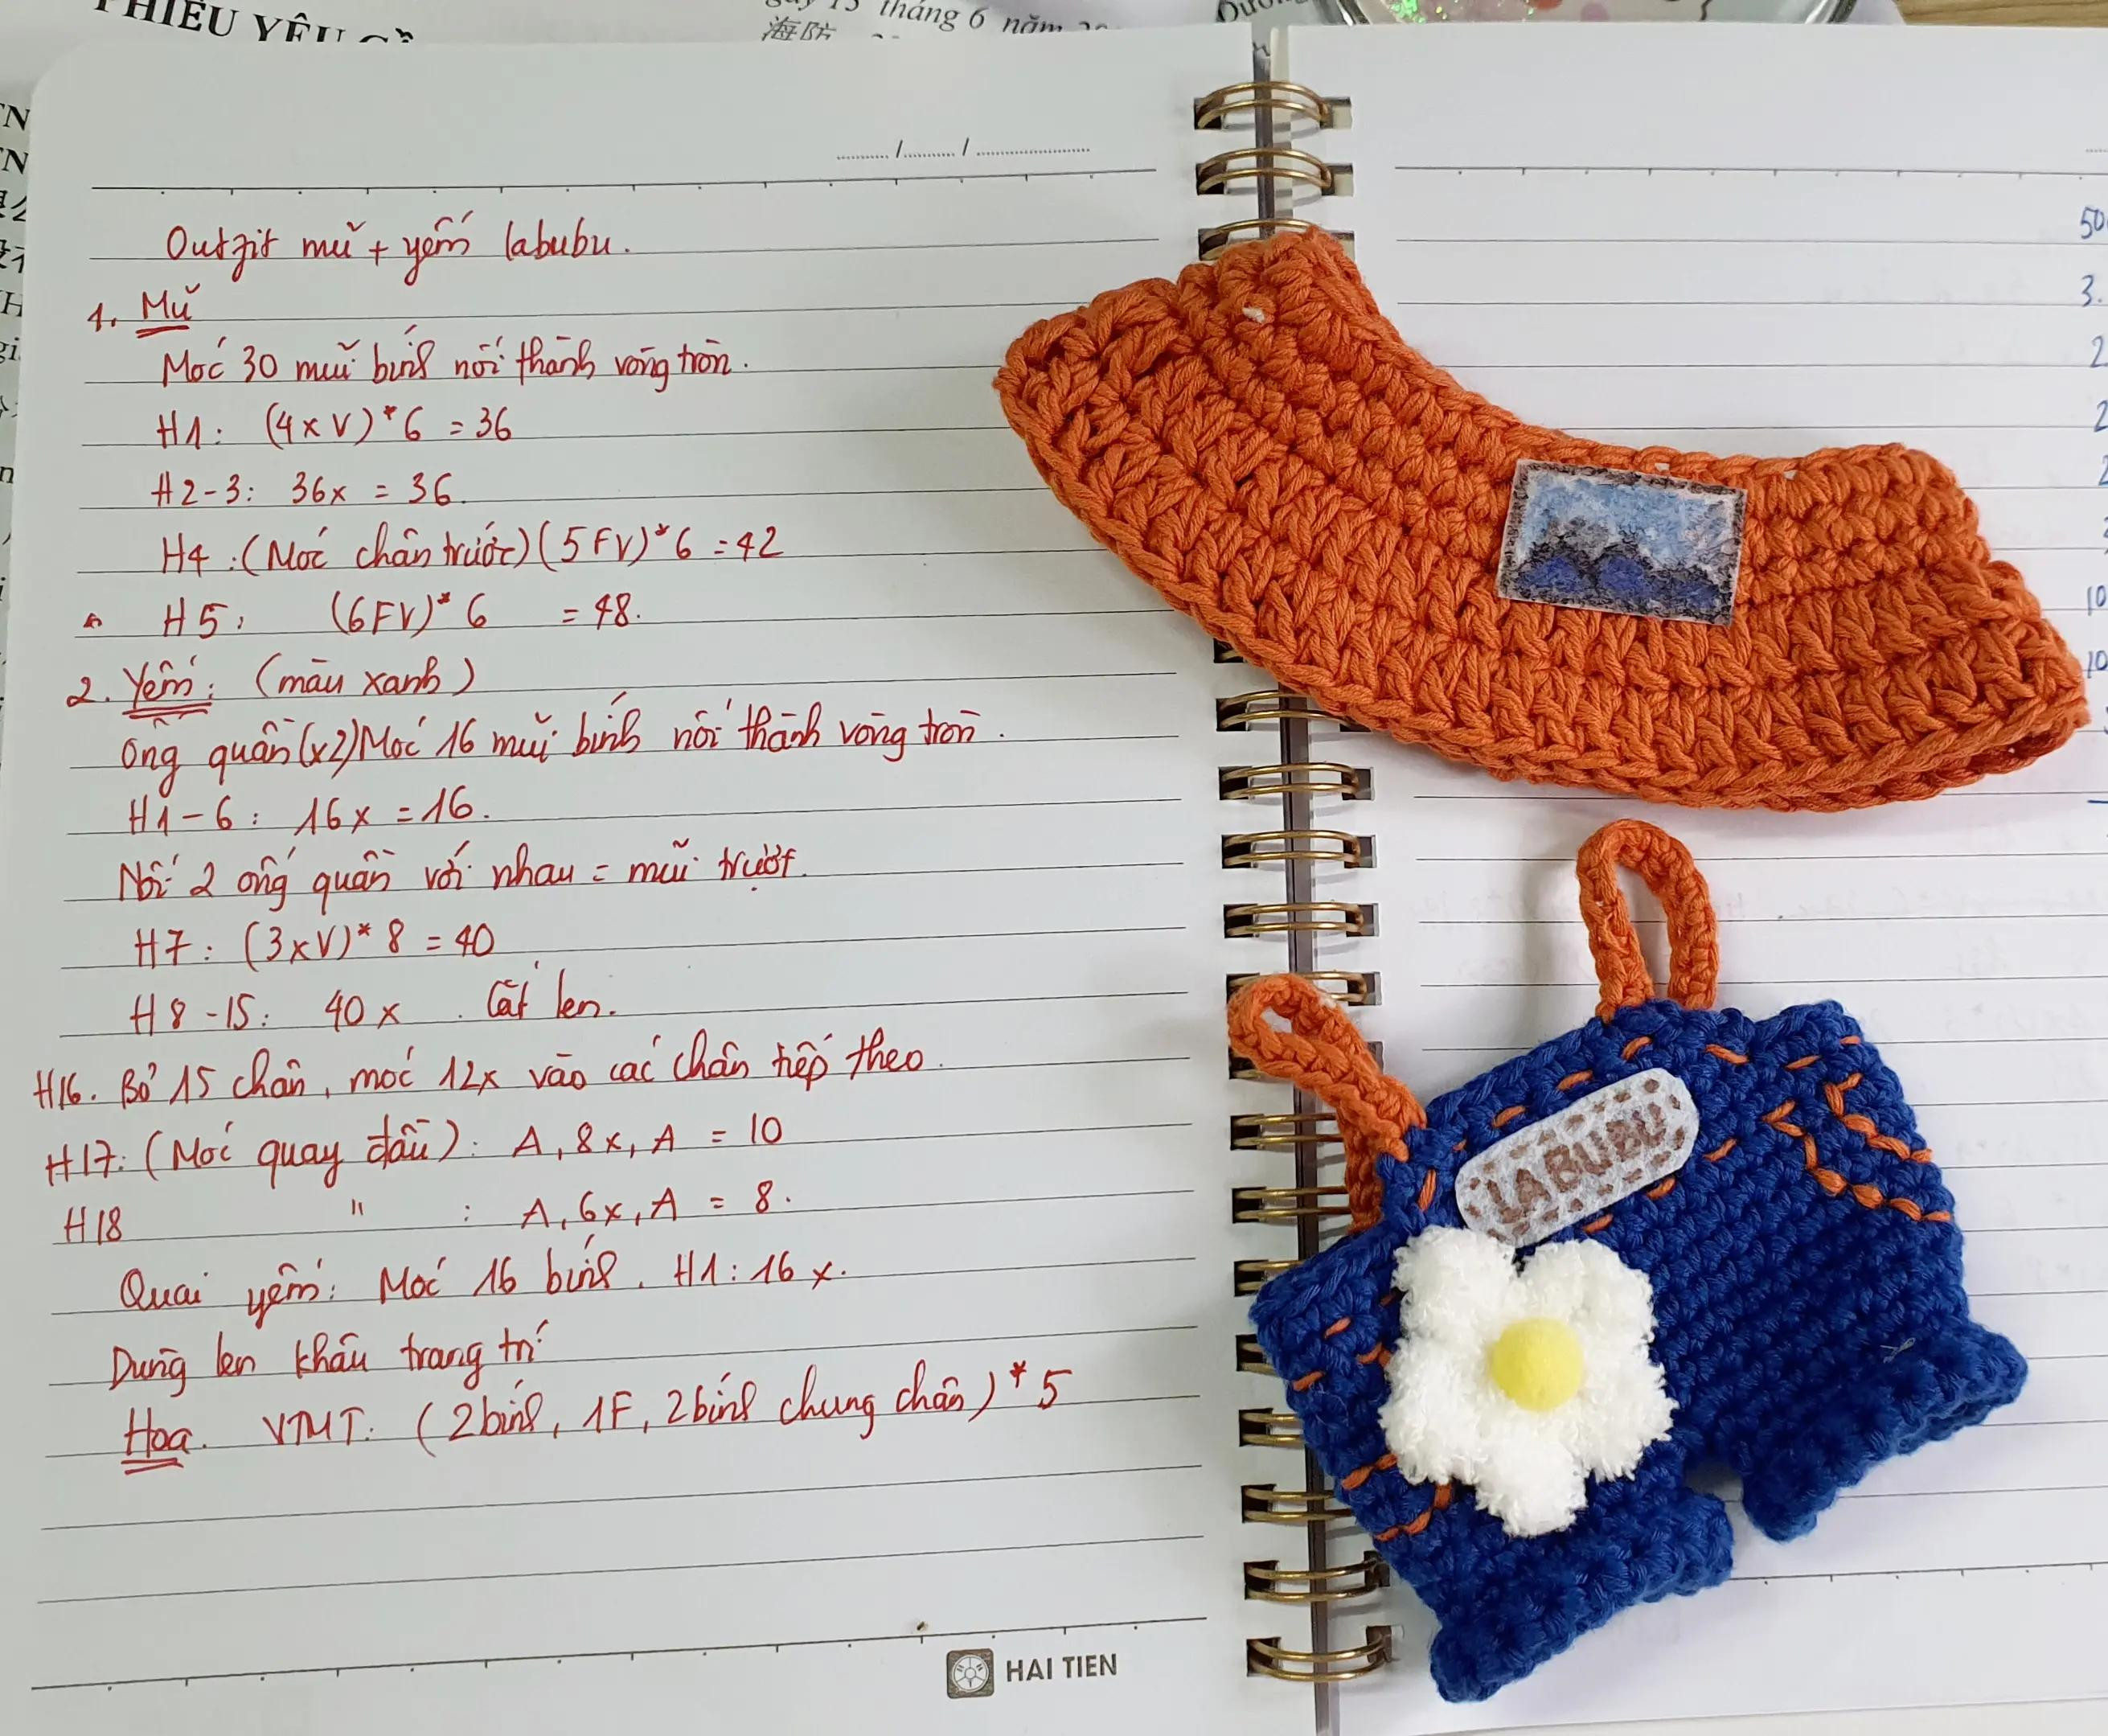 PHIẾU YÊU CẦ
tháng 6 năm
海防
Outfit mũ + yếm labubu.
1. Mũ
Móc 30 mũi bính nối thành vòng tròn.
H1: (4xV)*6 = 36
H2-3: 36x = 36.
H4: (Móc chân trước)(5FV)*6 = 42
H5: (6FV)*6 = 48.
2. Yếm: (màu xanh)
Ống quần(x2) Móc 16 mũi bính nối thành vòng tròn.
H1-6: 16x = 16.
Nối 2 ống quần với nhau = mũi trượt.
H7: (3xV)*8 = 40
H8-15: 40x. Cắt len.
H16. Bỏ 15 chân, móc 12x vào các chân tiếp theo.
H17: (Móc quay đầu): A, 8x, A = 10
H18 " : A, 6x, A = 8.
Quai yếm: Móc 16 bính. H1: 16x.
Dùng len khâu trang trí
Hoa. VTMT: (2bính, 1F, 2bính chung chân)*5
HAI TIEN
LABUBU
50
3.
2
2
2
10
10